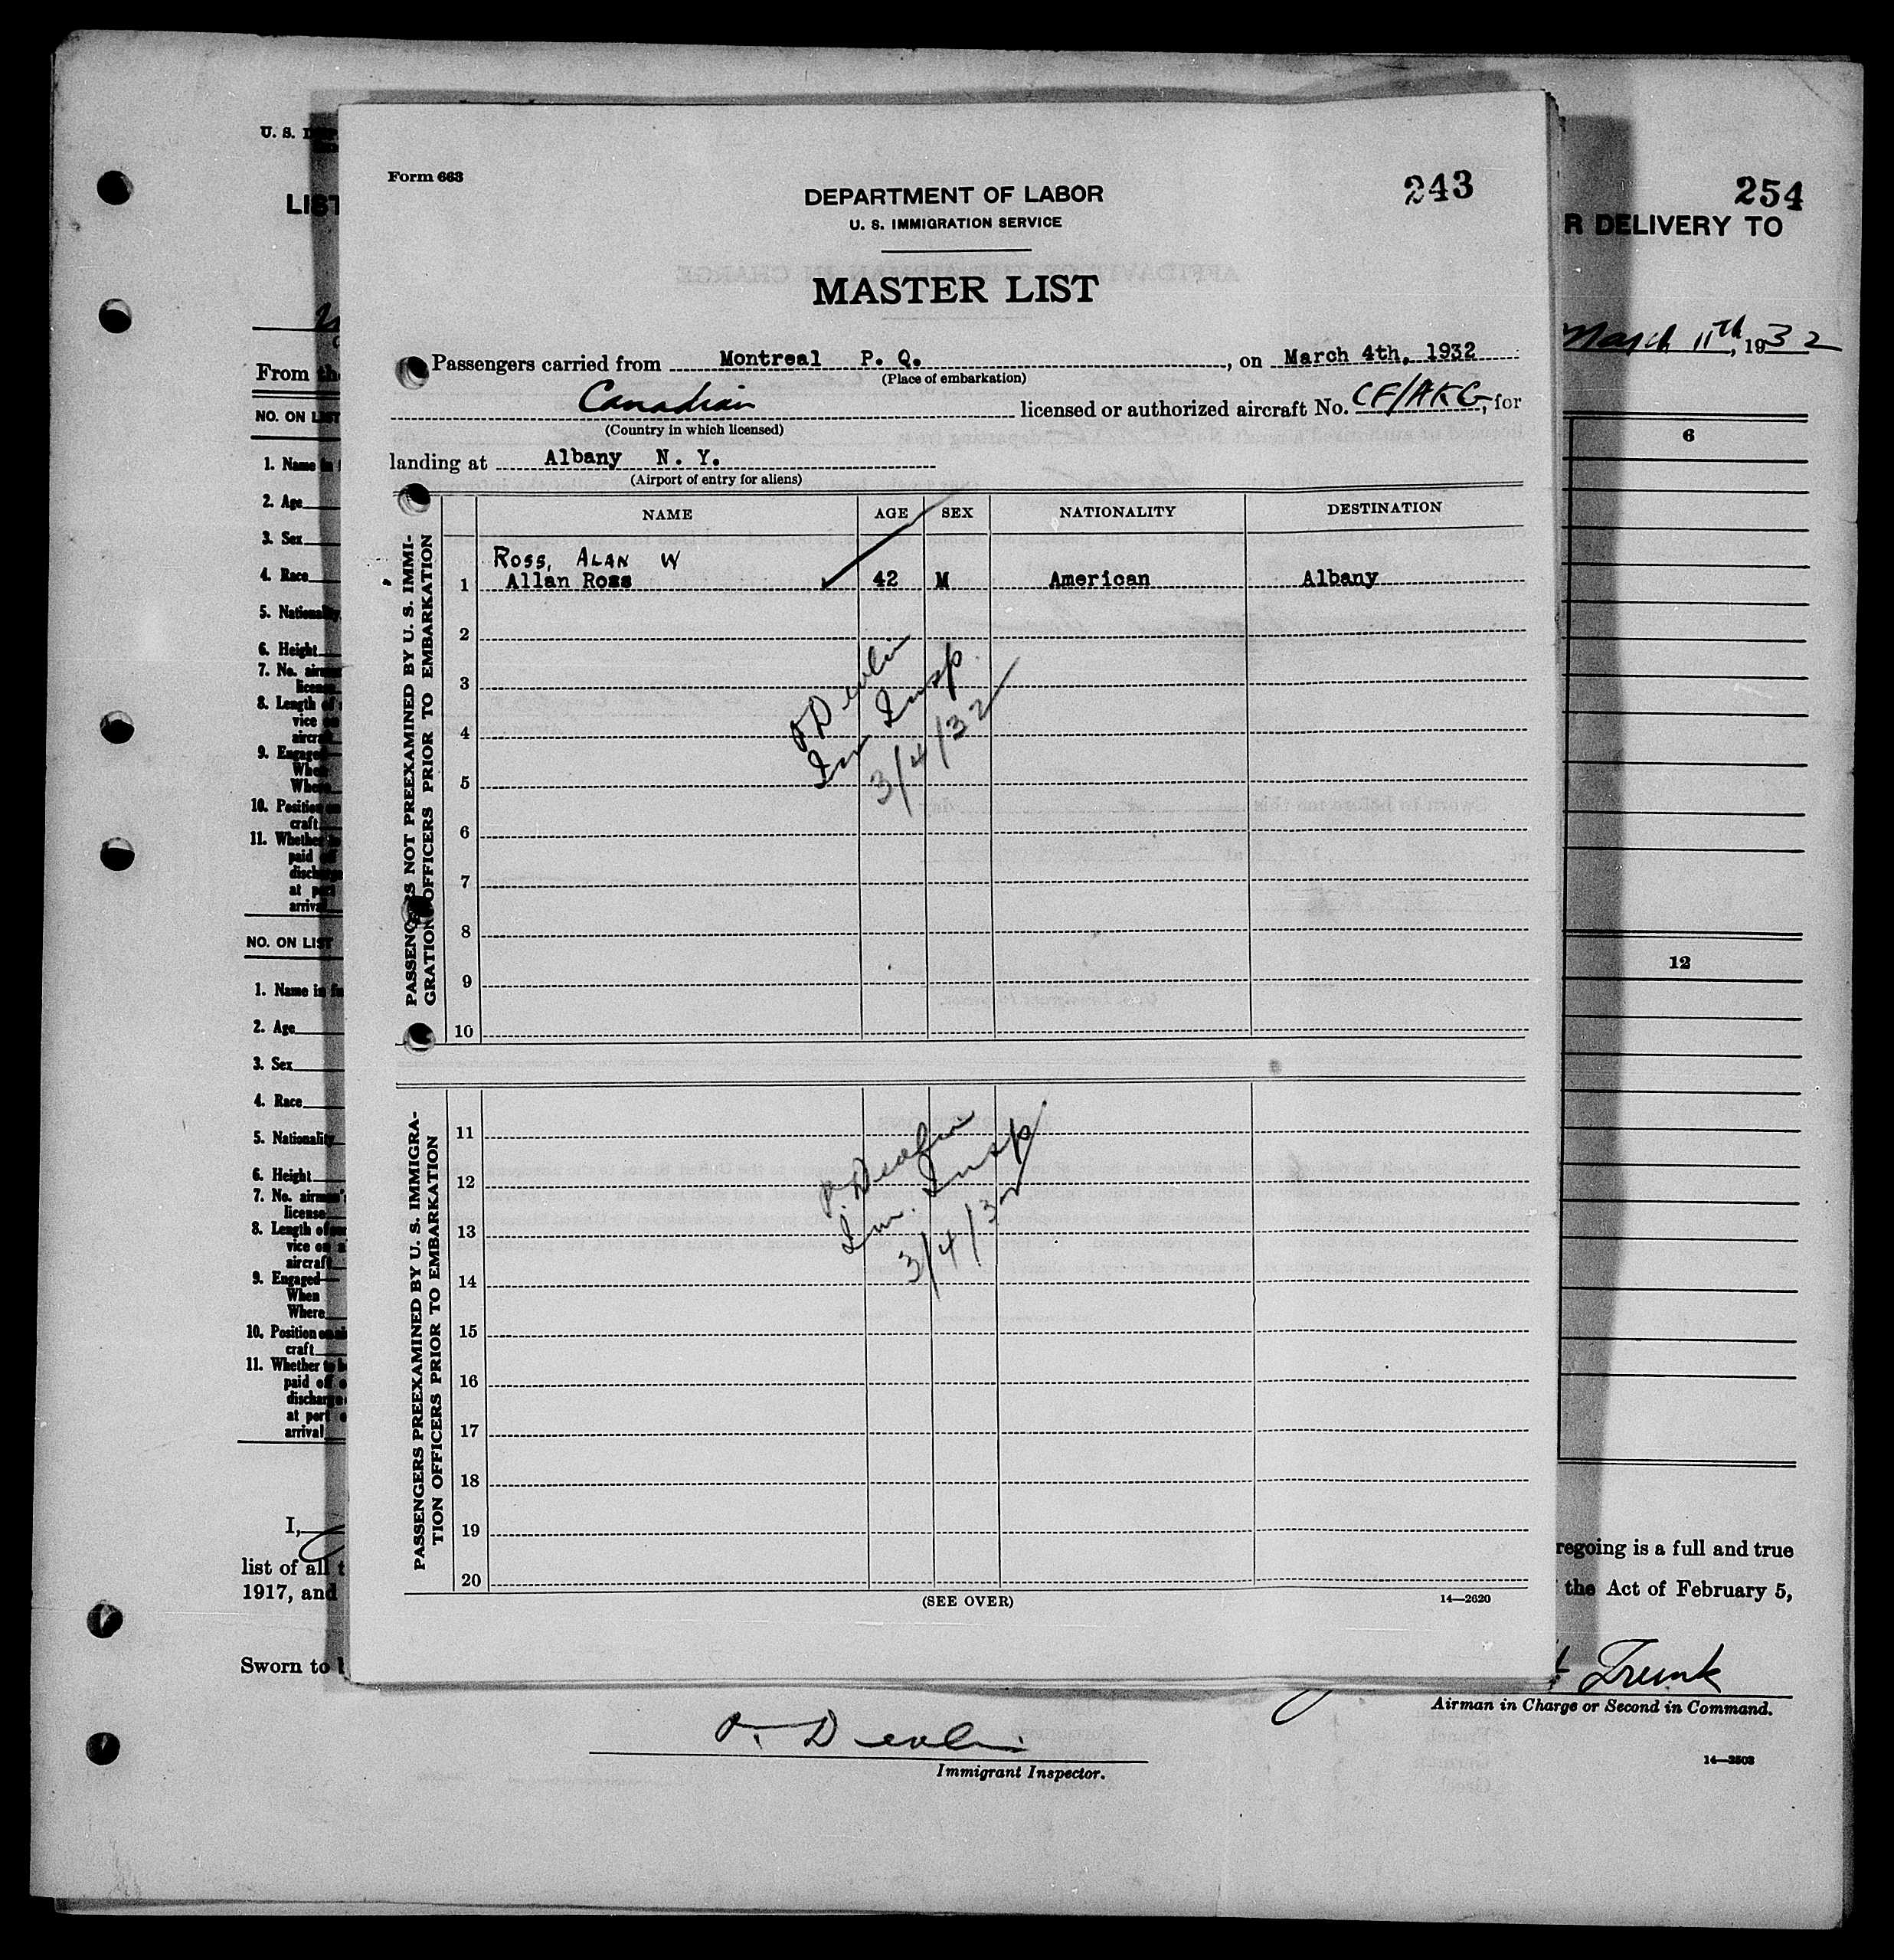 Form 663
243
DEPARTMENT OF LABOR
U. S. IMMIGRATION SERVICE
MASTER LIST
Passengers carried from Montreal P. Q., on March 4th, 1932
(Place of embarkation)
Canadian licensed or authorized aircraft No. CF/AKG, for
(Country in which licensed)
landing at Albany N. Y.
(Airport of entry for aliens)
NAME AGE SEX NATIONALITY DESTINATION
PASSENGERS NOT PREEXAMINED BY U. S. IMMI-
GRATION OFFICERS PRIOR TO EMBARKATION
ROSS, ALAN W
1 Allan Ross 42 M American Albany
2
3
4
5
6
7
8
9
10
Devlin
Im Insp
3/4/32
PASSENGERS PREEXAMINED BY U. S. IMMIGRA-
TION OFFICERS PRIOR TO EMBARKATION
11
12
13
14
15
16
17
18
19
20
Devlin
Im. Insp
3/4/32
(SEE OVER)
14—2620
U. S.
LIST
From the
NO. ON LIST
1. Name in
2. Age
3. Sex
4. Race
5. Nationality
6. Height
7. No. airman's
license
8. Length of
vice on
aircraft
9. Engaged
When
Where
10. Position on
craft
11. Whether
paid off
discharged
at port
arrival
NO. ON LIST
1. Name in
2. Age
3. Sex
4. Race
5. Nationality
6. Height
7. No. airman's
license
8. Length of
vice on
aircraft
9. Engaged—
When
Where
10. Position on
craft
11. Whether to
paid off
discharged
at port
arrival
I,
list of all
1917, and
Sworn to
254
R DELIVERY TO
March 11th, 1932
6
12
regoing is a full and true
the Act of February 5,
Trunk
Airman in Charge or Second in Command.
Devlin
Immigrant Inspector.
14—2503